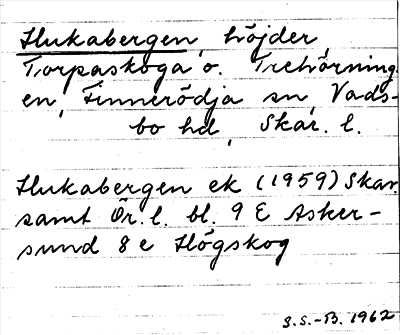 Slukabergen, höjder,
Torpaskoga o. Trehörning
en, Finnerödja sn, Vads-
bo hd, Skar. l.
Slukabergen ek (1959) Skar.
samt Ör. l. bl. 9 E Asker-
sund 8 e Högskog
S.S.-B. 1962